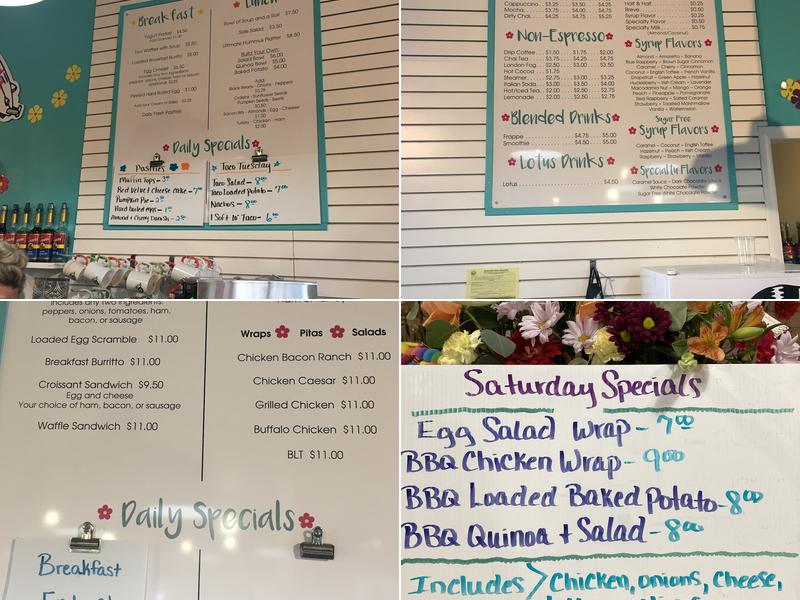 Breakfast
Yogurt Parfait $4.50
Two Waffles with Syrup $5.50
Loaded Breakfast Burrito $8.00
Egg Omelet $6.50
Peeled Hard Boiled Egg $1.00
Daily Fresh Pastries
Lunch
Bowl of Soup and a Roll $7.50
Side Salad $3.50
Ultimate Hummus Platter $8.50
Build Your Own:
Salad Bowl $6.00
Quinoa Bowl $5.00
Baked Potato $4.00
Add:
Black Beans - Onions - Peppers
$0.25
Craisins - Sunflower Seeds
Pumpkin Seeds - Beets
$0.50
Bacon Bits - Almonds - Egg - Cheese
$1.00
Turkey - Chicken - Ham
$2.00
Daily Specials
Pastries
Muffin Tops - 3
Red Velvet Cheese cake - 7
Pumpkin Pie - 3
Hard boiled eggs - 1
Almond & Cherry Danish - 2
Taco Tuesday
Taco Salad - 8
Taco Loaded Potato - 7
Nachos - 8
1 Soft 10" Taco - 6
Cappuccino $3.25 $3.75 $4.50
Mocha $3.75 $4.25 $5.00
Dirty Chai $4.25 $4.75 $5.25
Non-Espresso
Drip Coffee $1.50 $1.75 $2.00
Chai Tea $3.75 $4.25 $4.75
London Fog $2.50 $3.00 $3.50
Hot Cocoa $1.75
Steamer $2.75 $3.00 $3.25
Italian Soda $3.00 $3.50 $4.00
Hot/Iced Tea $2.00 $2.50 $3.00
Lemonade $2.00 $2.50 $3.00
Blended Drinks
Frappe $4.75 $5.00
Smoothie $4.50 $5.00
Lotus Drinks
Lotus $4.50
Half & Half $0.25
Breve $0.50
Syrup Flavor $0.25
Specialty Flavor $0.50
Specialty Milk $0.75
(Almond/Coconut)
Syrup Flavors
Almond - Amaretto - Banana
Blue Raspberry - Brown Sugar Cinnamon
Caramel - Cherry - Cinnamon
Coconut - English Toffee - French Vanilla
Grapefruit - Green Apple - Hazelnut
Huckleberry - Irish Cream - Lavender
Macadamia Nut - Mango - Orange
Peach - Pineapple - Pomegranate
Red Raspberry - Salted Caramel
Strawberry - Toasted Marshmallow
Vanilla - Watermelon
Sugar Free
Syrup Flavors
Caramel - Coconut - English Toffee
Hazelnut - Peach - Irish Cream
Raspberry - Strawberry - Vanilla
Specialty Flavors
Caramel Sauce - Dark Chocolate Sauce
White Chocolate Powder
Sugar Free White Chocolate Powder
Includes any two ingredients:
peppers, onions, tomatoes, ham,
bacon, or sausage
Loaded Egg Scramble $11.00
Breakfast Burritto $11.00
Croissant Sandwich $9.50
Egg and cheese
Your choice of ham, bacon, or sausage
Waffle Sandwich $11.00
Wraps Pitas Salads
Chicken Bacon Ranch $11.00
Chicken Caesar $11.00
Grilled Chicken $11.00
Buffalo Chicken $11.00
BLT $11.00
Daily Specials
Breakfast
Saturday Specials
Egg Salad Wrap - 7.00
BBQ Chicken Wrap - 9.00
BBQ Loaded Baked Potato - 8.00
BBQ Quinoa + Salad - 8.00
Includes > Chicken, onions, cheese,